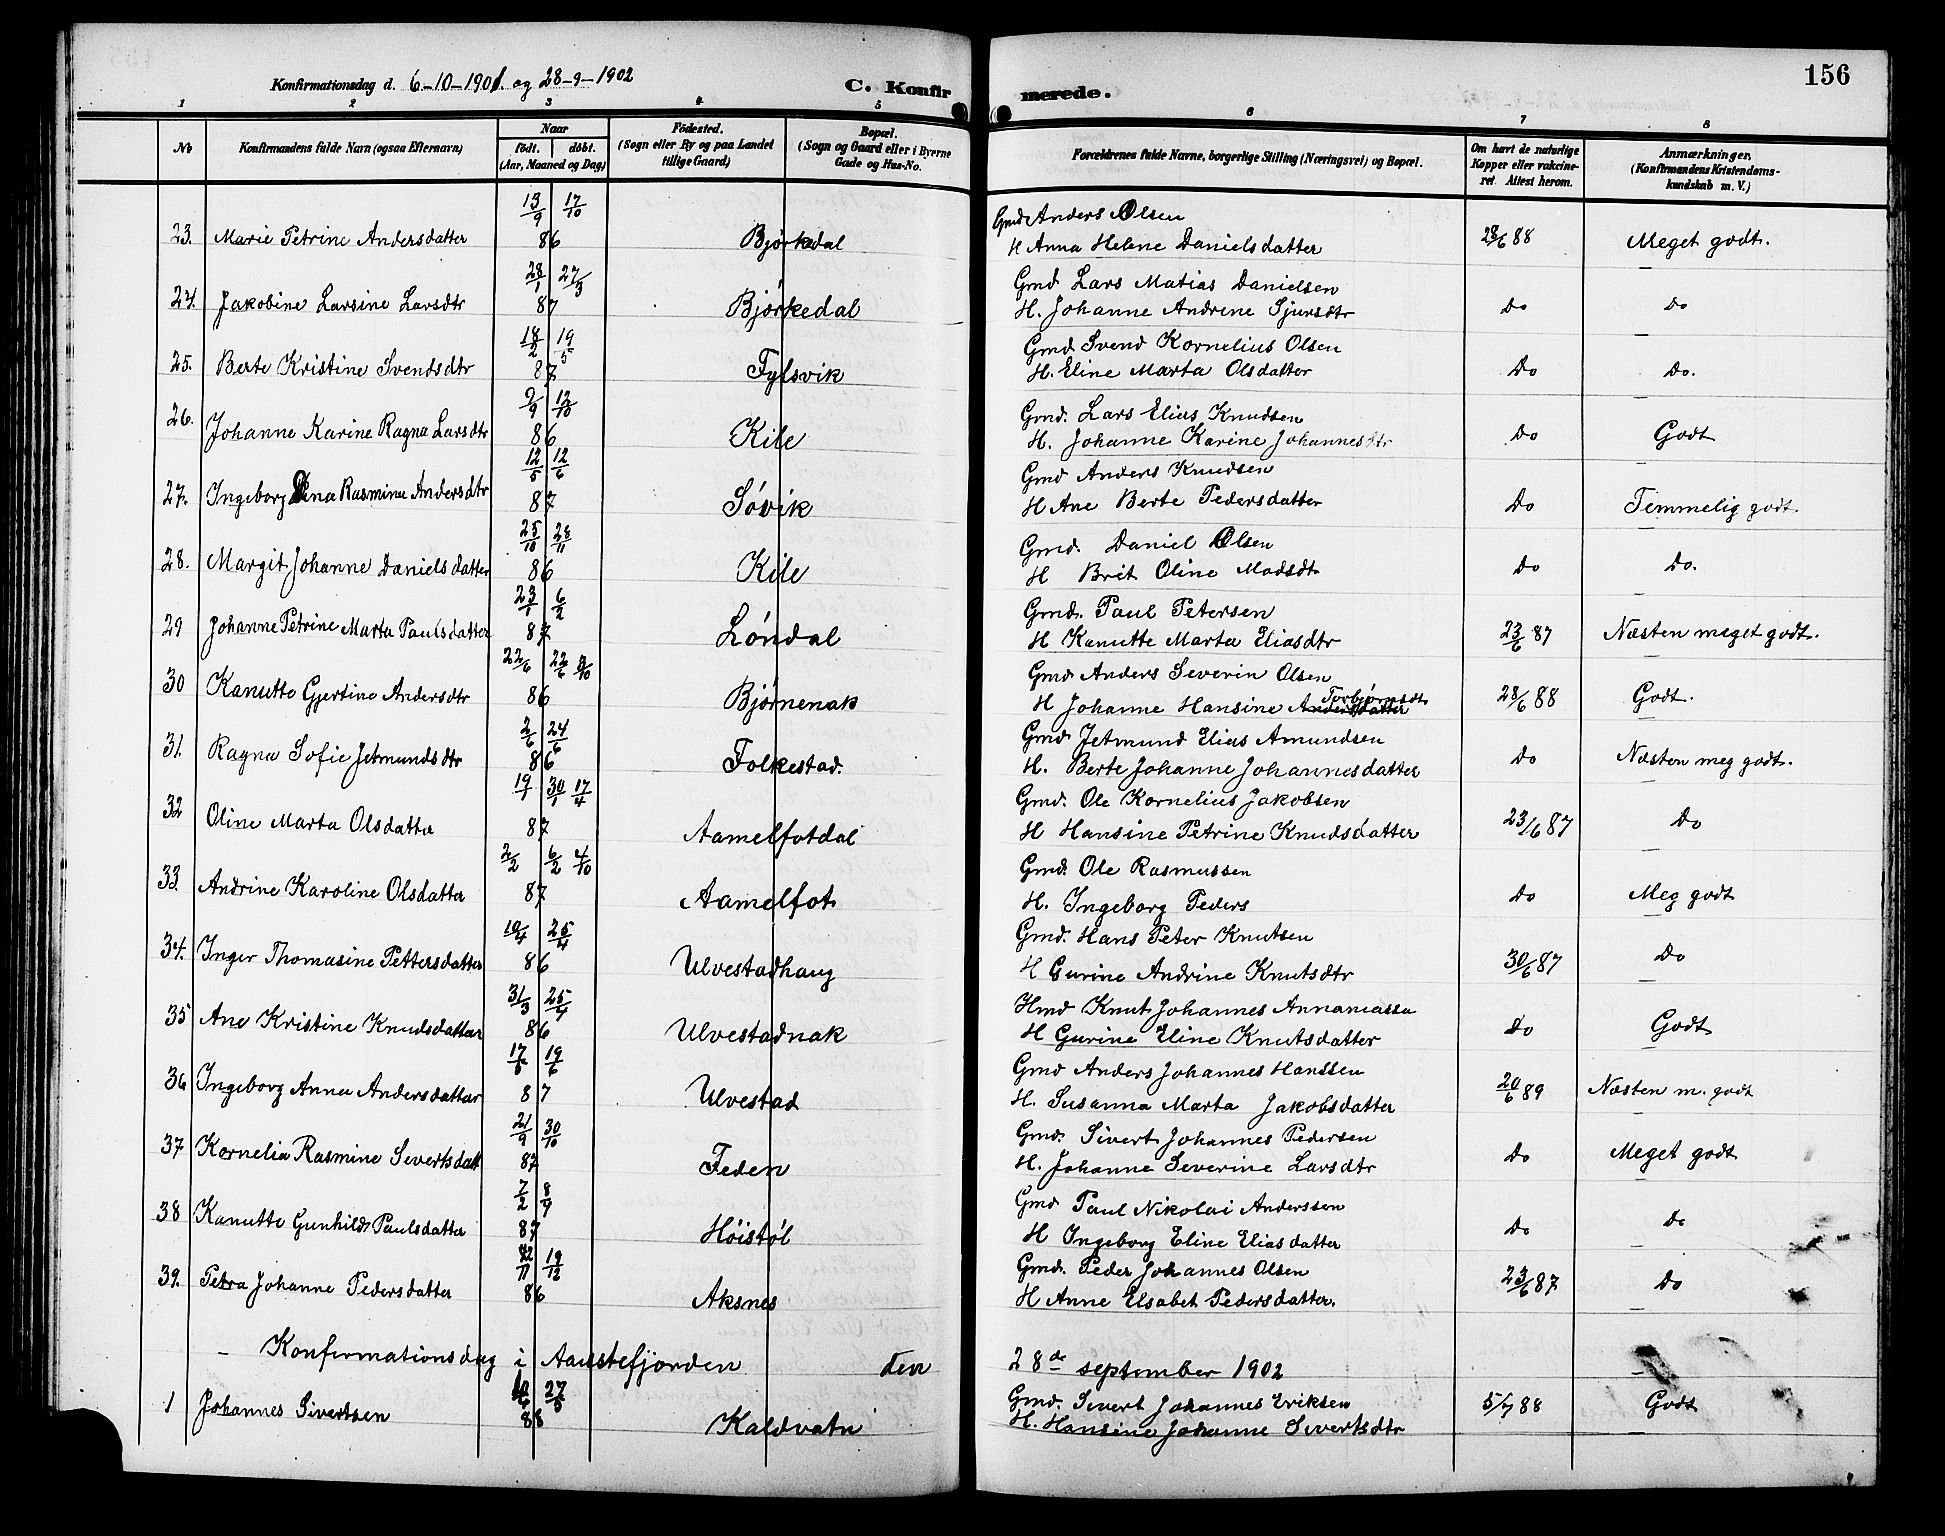 Konfirmationsdag d. 6-10-1901. og 28-9-1902
C. Konfirmerede.
156
1 2 3 4 5 6 7 8
No
Konfirmandens fulde Navn (ogsaa Efternavn)
Naar
födt. döbt.
(Aar, Maaned og Dag)
Födested.
(Sogn eller By og paa Landet
tillige Gaard)
Bopæl.
(Sogn og Gaard eller i Byerne
Gade og Hus-No.
Forældrenes fulde Navne, borgerlige Stilling (Næringsvei) og Bopæl.
Om havt de naturlige
Kopper eller vakcine-
ret. Attest herom.
Anmærkninger,
(Konfirmandens Kristendoms-
kundskab m. V.)
13/9 17/10 Gmd Anders Olsen
23. Marie Petrine Andersdatter 86 Bjørkedal H Anna Helene Danielsdatter 28/6 88 Meget godt.
28/1 27/3 Gmd Lars Matias Danielsen
24. Jakobine Larsine Larsdtr 87 Bjørkedal H. Johanne Andrine Sjursdtr Do Do
18/2 19/5 Gmd Svend Kornelius Olsen
25. Berte Kristine Svendsdtr 87 Fylsvik H. Eline Marta Olsdatter Do Do.
2/9 12/10 Gmd. Lars Elias Knudsen
26. Johanne Karine Ragna Larsdtr 86 Kile H. Johanne Karine Johannesdtr Do Godt
12/5 12/6 Gmd Anders Knudsen
27. Ingeborg Dina Rasmine Andersdtr 87 Søvik H Ane Berte Pedersdatter Do Temmelig godt.
25/10 28/11 Gmd. Daniel Olsen
28. Margit Johanne Danielsdatter 86 Kile H Brit Oline Madsdt Do Do.
23/1 6/2 Gmd. Paul Petersen
29 Johanne Petrine Marta Paulsdatter 87 Løndal H Kanutte Marta Eliasdtr 23/6 87 Næsten meget godt.
22/6 22/6 3/10 Gmd Anders Severin Olsen
30 Kanutte Gjertine Andersdtr 86 Bjørnenak H Johanne Hansine Andersdatter Torbjørnsdt 28/6 88 Godt.
2/6 24/6 Gmd Jetmund Elias Amundsen
31. Ragna Sofie Jetmundsdtr 86 Folkestad. H. Berte Johanne Johannesdatter Do Næsten meg godt.
19/1 30/1 17/4 Gmd. Ole Kornelius Jakobsen
32 Oline Marta Olsdatter 87 Aamelfotdal H Hansine Petrine Knudsdatter 23/6 87 Do
2/2 6/2 4/10 Gmd. Ole Rasmussen
33. Andrine Karoline Olsdatter 87 Aamelfot H. Ingeborg Peders Do Meg godt
19/4 25/4 Gmd. Hans Peter Knutsen
34. Inger Thomasine Pettersdatter 86 Ulvestadhaug H Gurine Andrine Knutsdtr 30/6 87 Do
31/3 25/4 Hmd Knut Johannes Annaniassen
35 Ane Kristine Knudsdatter 86 Ulvestadnak H Gurine Eline Knutsdatter Do Godt
17/5 19/6 Gmd Anders Johannes Hanssen
36 Ingeborg Anna Andersdatter 87 Ulvestad H. Susanna Marta Jakobsdatter 20/6 89 Næsten m. godt
21/9 30/10 Gmd. Sivert Johannes Pedersen
37 Kornelia Rasmine Severtsdatt 87 Feden H. Johanne Severine Larsdtr Do Meget godt
7/2 8/9 Gmd Paul Nikolai Anderssen
38 Kanutte Gunhild Paulsdatter 87 Høistøl H Ingeborg Eline Eliasdatter Do Do
12/11 19/12 Gmd. Peder Johannes Olsen
39. Petra Johanne Pedersdatter 86 Aksnes H Anne Elsabet Pedersdatter. 23/6 87 Do
– Konfirmationsdag i Aaustefjorden den 28de september 1902
27/5 Gmd. Sivert Johannes Eriksen
1 Johannes Sivertsen 88 Kaldvatn H. Hansine Johanne Sivertsdtr 5/7 88 Godt